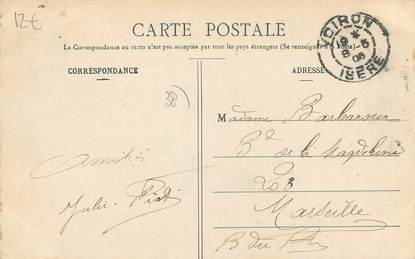 12€
CARTE POSTALE
La Correspondance au recto n'est pas acceptée par tous les pays étrangers (Se renseigner à la Poste)
VOIRON
ISÈRE
CORRESPONDANCE
ADRESSE
38
Madame Barbaroux
Bd de la Magdeleine
Amitiés
Julie
Marseille
B du Rh